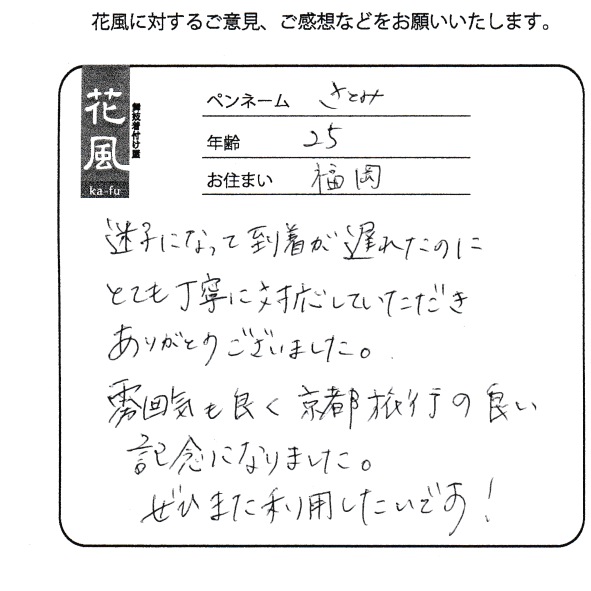 花風に対するご意見、ご感想などをお願いいたします。
花風
舞妓着付け屋
ka-fu
ペンネーム さとみ
年齢 25
お住まい 福岡
迷子になって到着が遅れたのに
とても丁寧に対応していただき
ありがとうございました。
雰囲気も良く京都旅行の良い
記念になりました。
ぜひまた利用したいです!